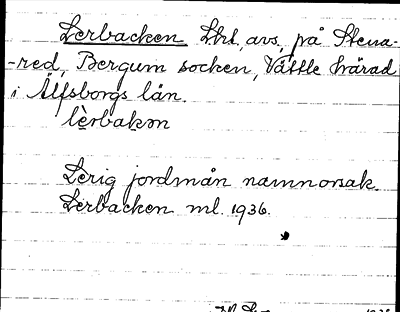 Lerbacken Lht, avs, på Stena-
-red, Bergum socken, Vättle härad
i Älfsborgs län.
lèrbakən
Lerig jordmån namnorsak.
Lerbacken ml. 1936.